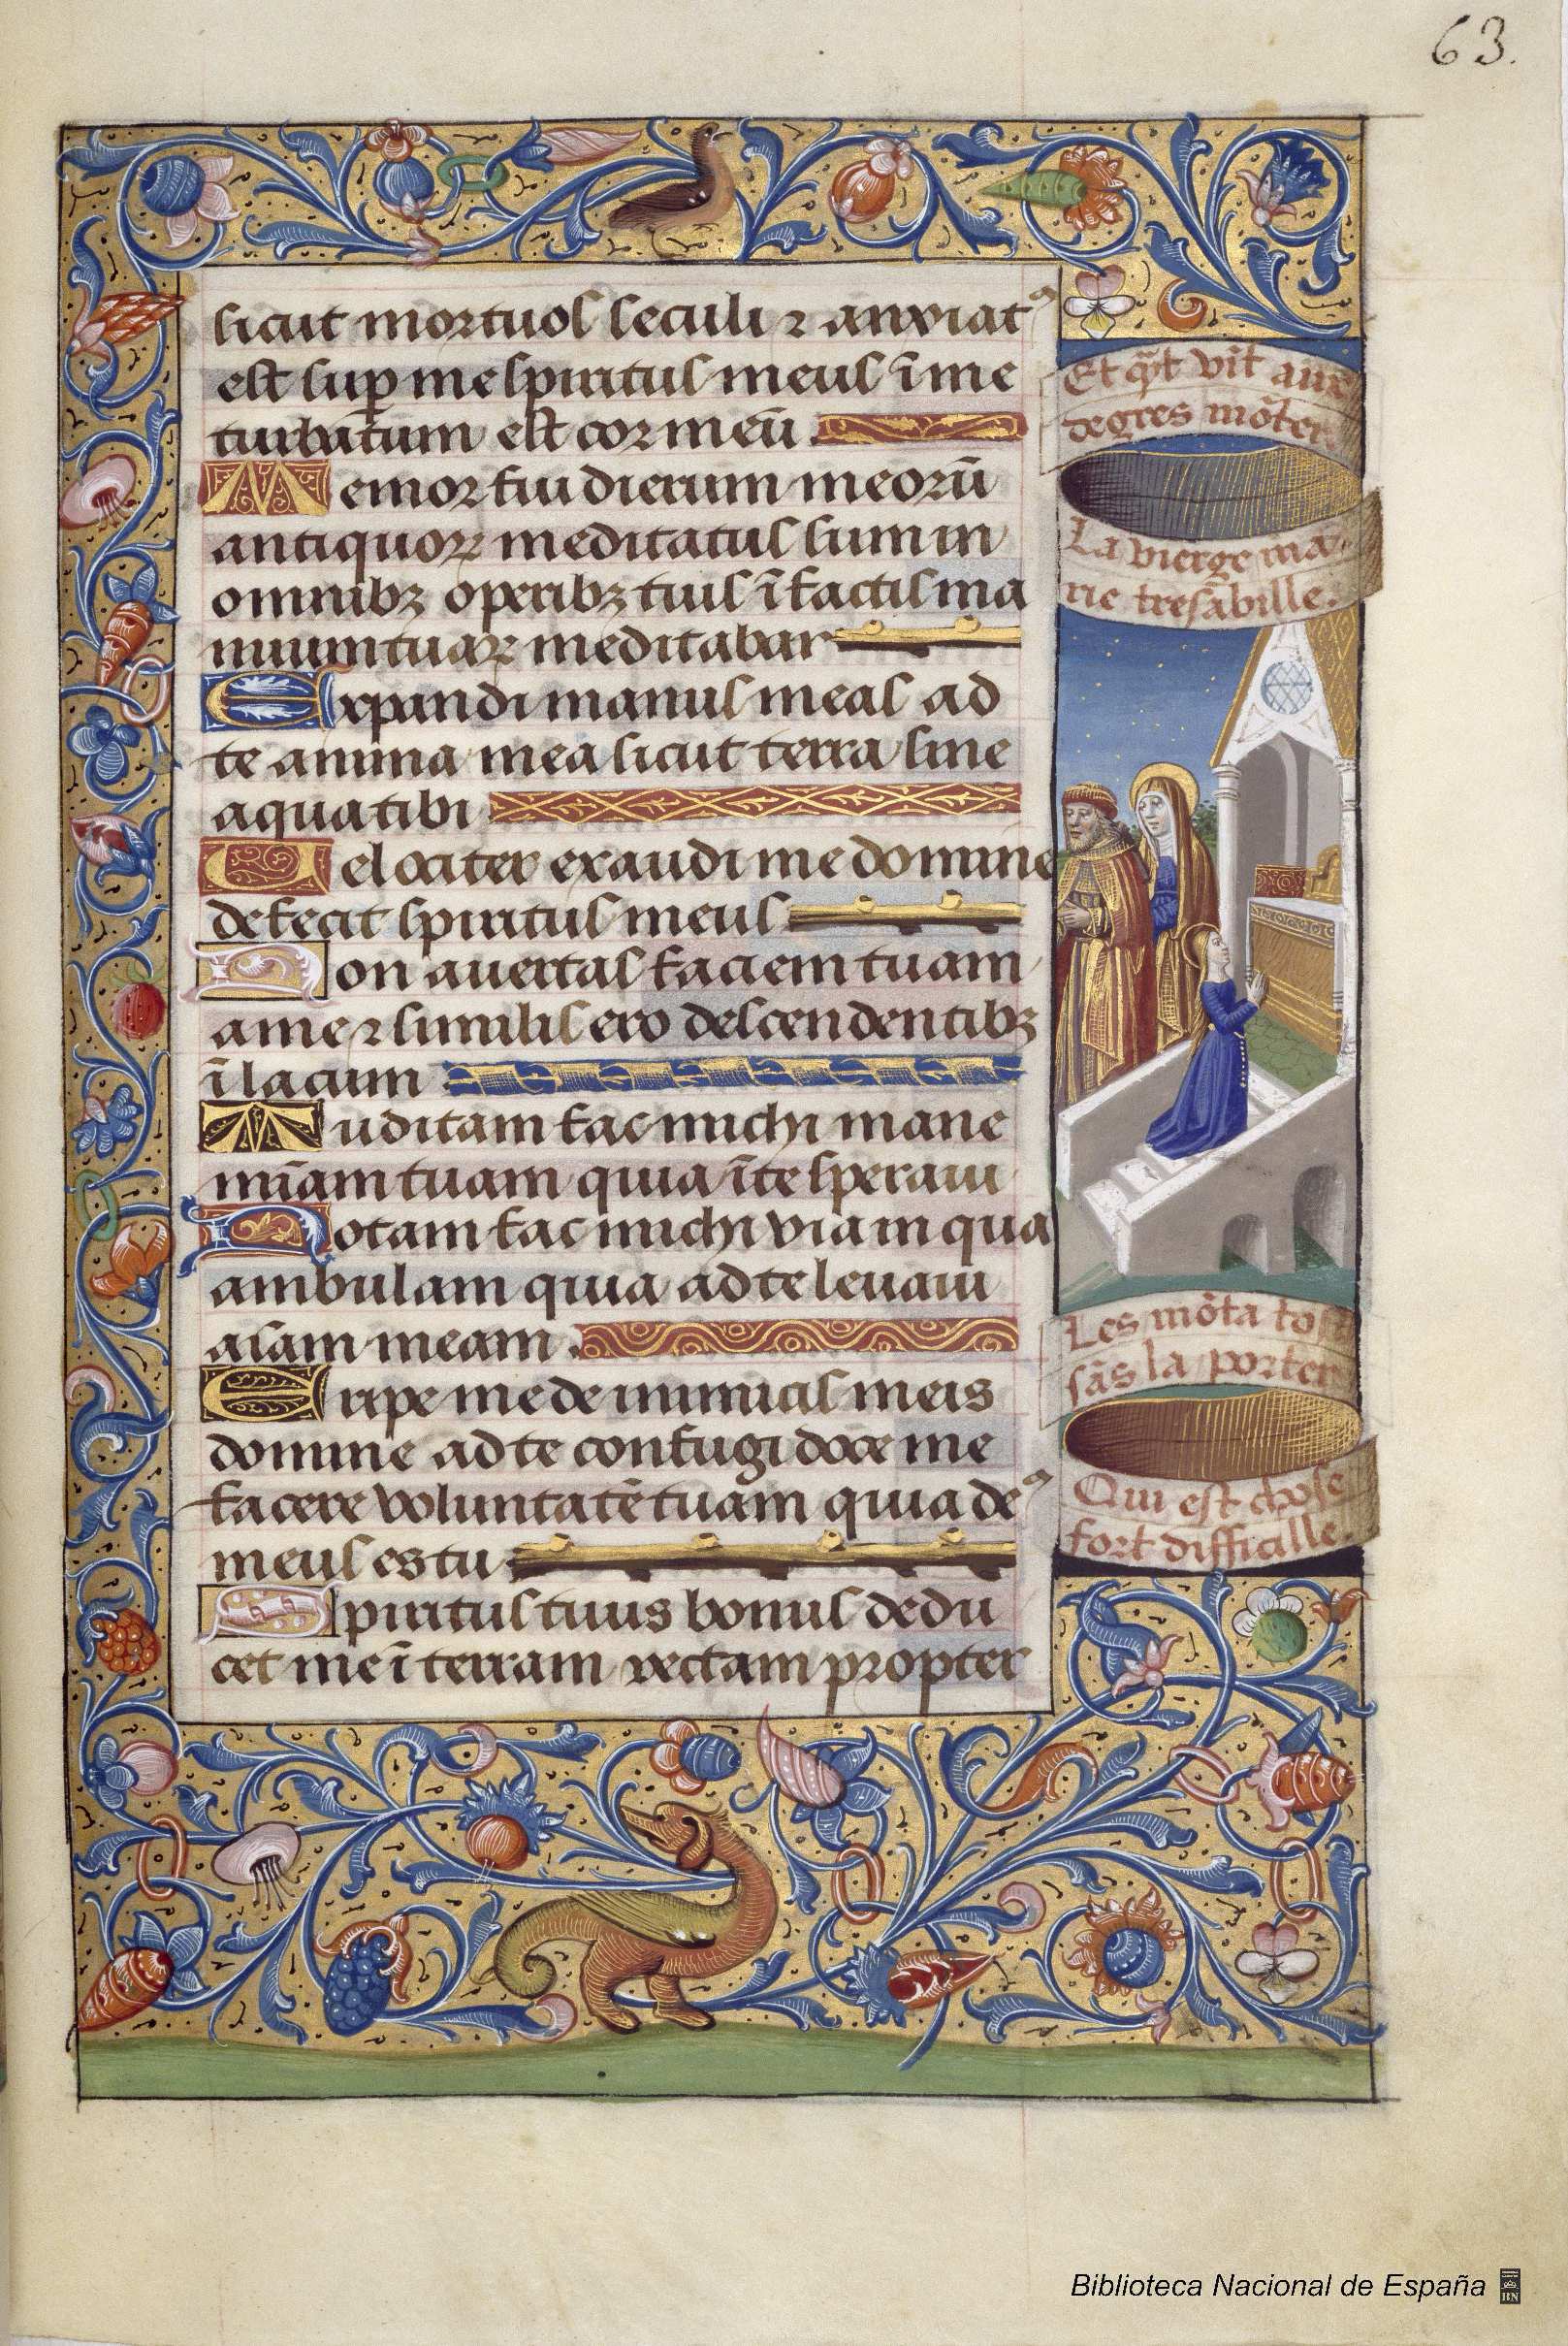 63.
sicut mortuos seculi ⁊ anxiatꝰ
est suꝑ me spiritus meus ī me
turbatum est cor meū.
Memor fui dierum meorū
antiquoꝝ meditatus sum in
omnibꝫ operibꝫ tuis ī factis ma
nuum tuaꝝ meditabar
Expandi manus meas ad
te anima mea sicut terra sine
aqua tibi
Velociter exaudi me domine
defecit spiritus meus
Non auertas faciem tuam
a me ⁊ similis ero descendentibꝫ
ī lacum
Auditam fac michi mane
mīam tuam quia ī te speraui
Notam fac michi viam in qua
ambulam quia ad te leuaui
aīam meam.
Eripe me de inimicis meis
domine ad te confugi doce me
facere voluntatē tuam quia deꝰ
meus es tu
Spiritus tuus bonus dedu
cet me ī terram rectam propter
Et q̄t vīt aux
degres mōter
La vierge ma
rie tresābille.
Les mōta tost
sās la porter
Qui est chose
fort difficille.
Biblioteca Nacional de España
BN